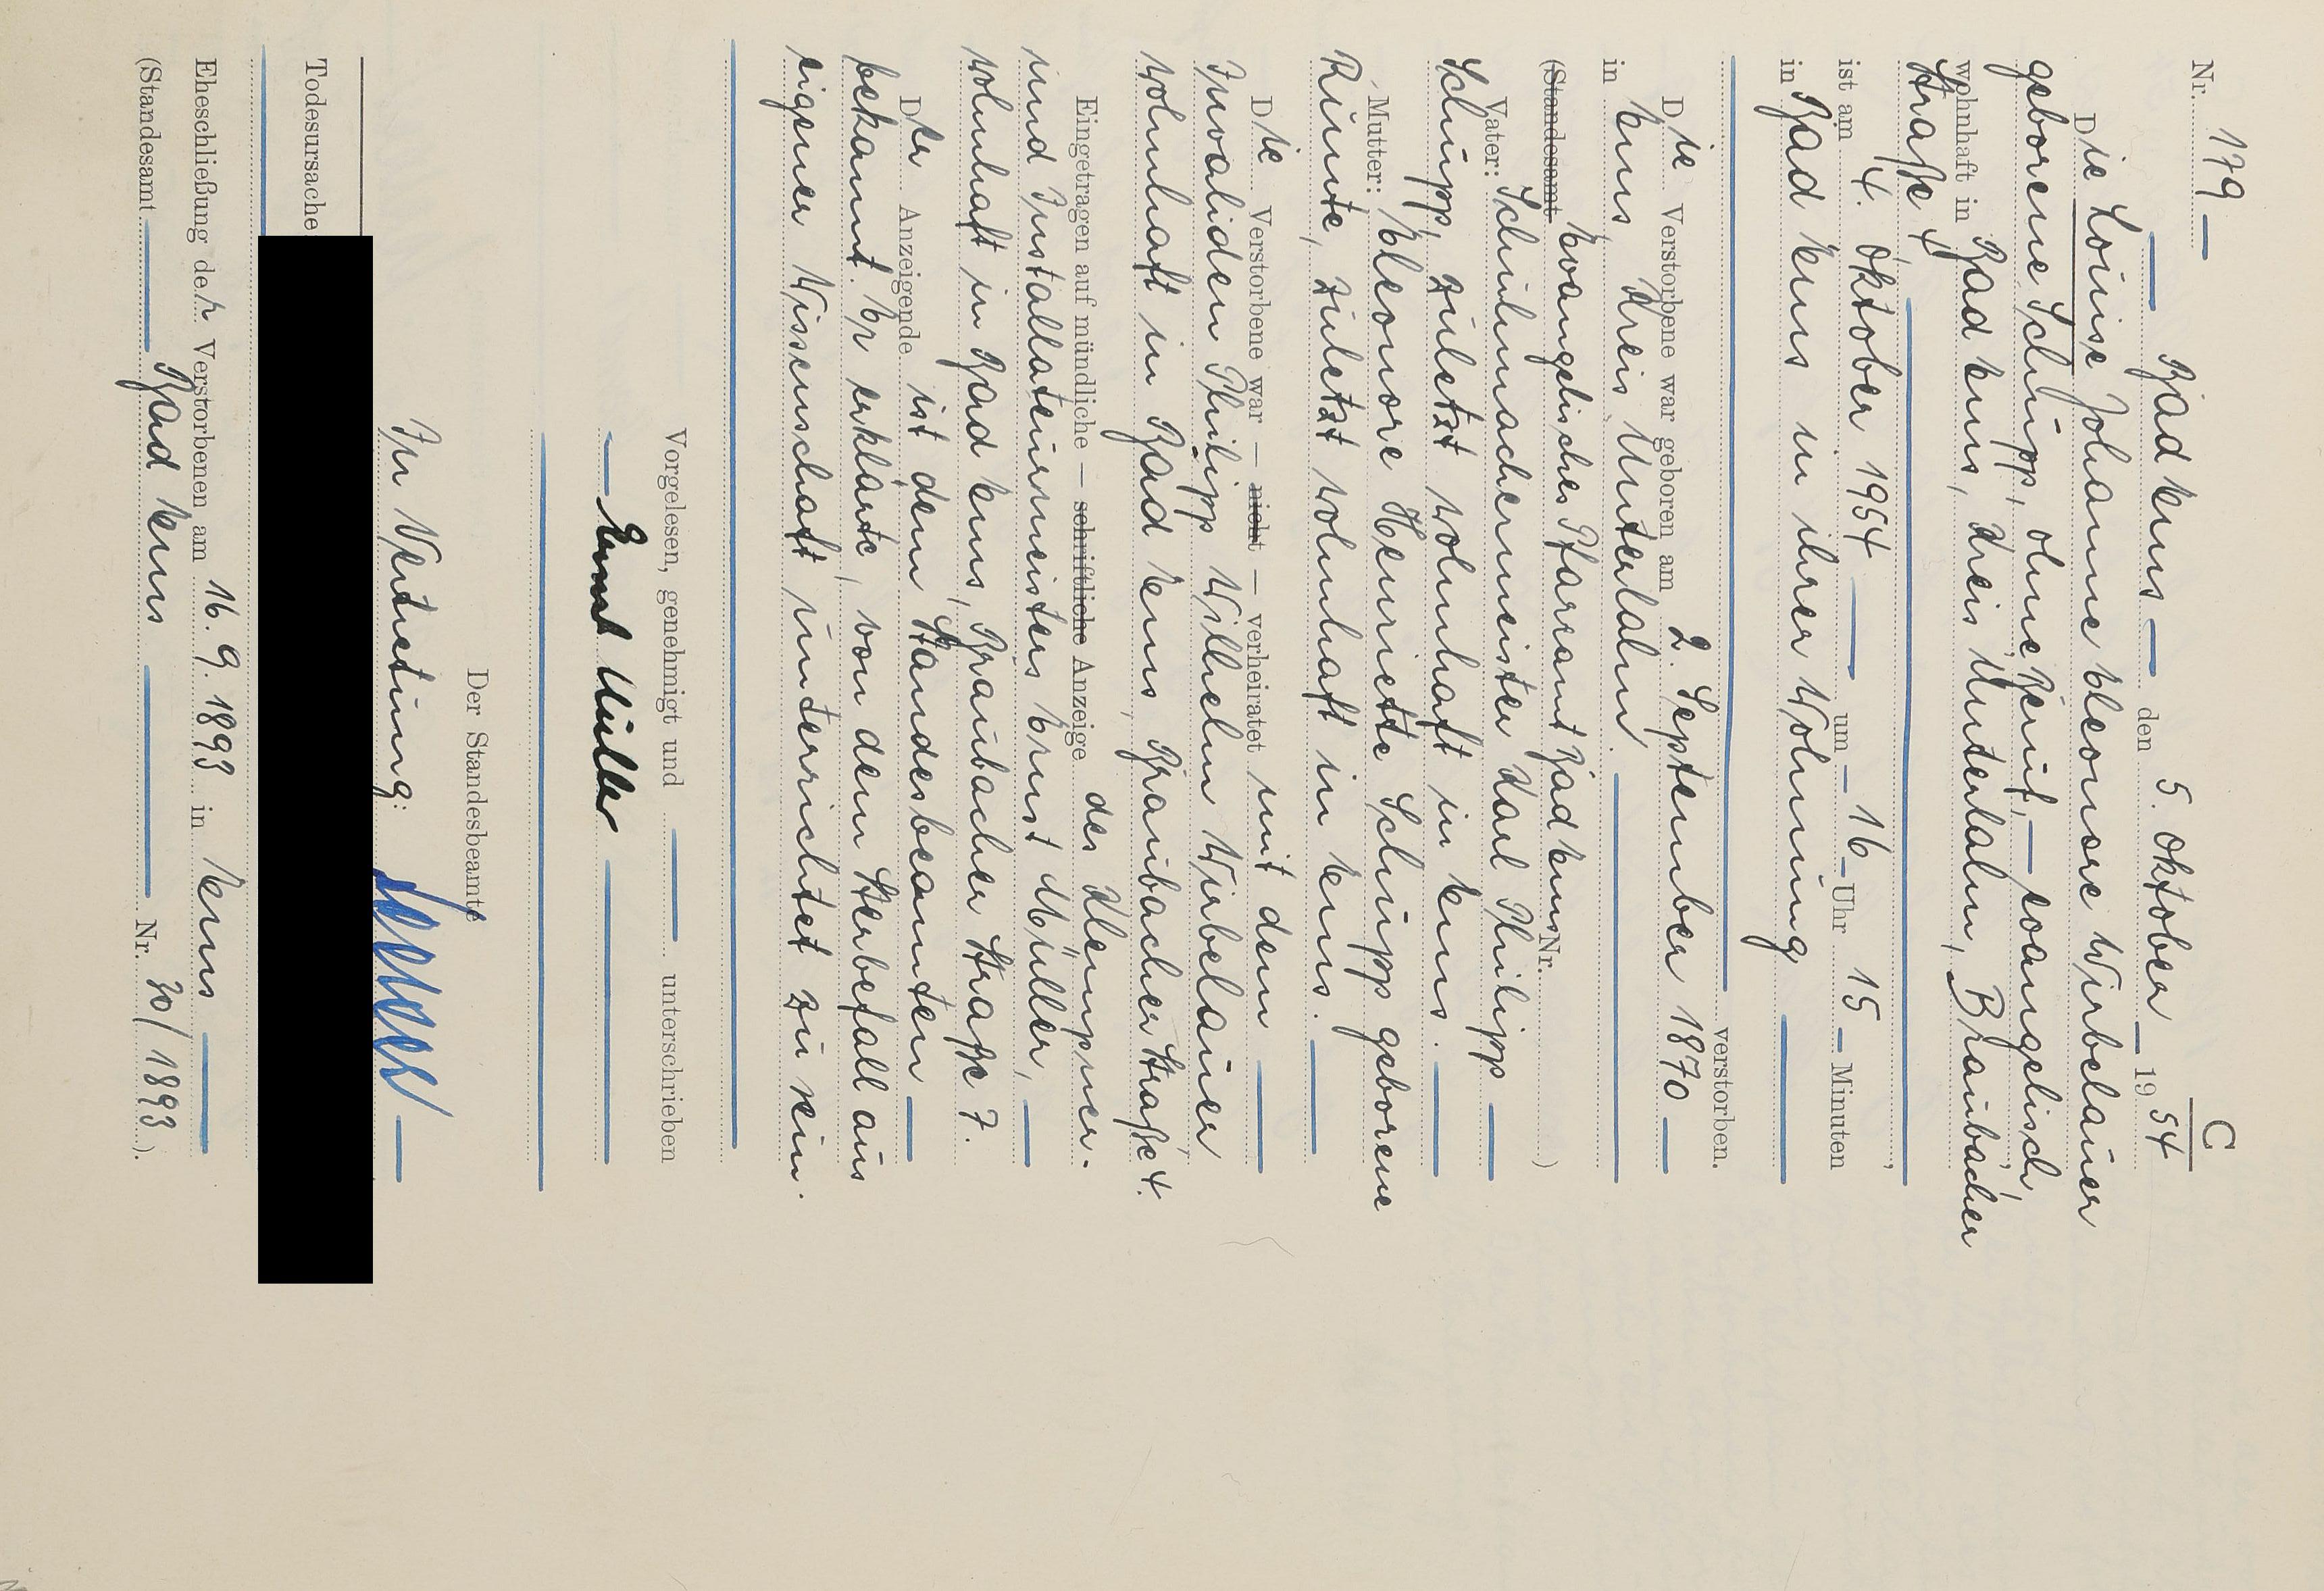 C
Nr. 179
Bad Ems, den 5. Oktober 1954
Die Louise Johanne Eleonore Wirbelauer
geborene Schupp, ohne Beruf, — evangelisch,
wohnhaft in Bad Ems, Kreis Unterlahn, Braubacher
Straße 4,
ist am 4. Oktober 1954 um 16 Uhr 15 Minuten
in Bad Ems in ihrer Wohnung
verstorben.
Die Verstorbene war geboren am 2. September 1870
in Ems, Kreis Unterlahn.
(Standesamt Evangelisches Pfarramt Bad Ems Nr. )
Vater: Schuhmachermeister Karl Philipp
Schupp, zuletzt wohnhaft in Ems.
Mutter: Eleonore Henriette Schupp geborene
Runte, zuletzt wohnhaft in Ems.
Die Verstorbene war — nicht — verheiratet mit dem
Invaliden Philipp Wilhelm Wirbelauer,
wohnhaft in Bad Ems, Braubacher Straße 4.
Eingetragen auf mündliche — schriftliche Anzeige des Klempner-
und Installateurmeisters Ernst Müller,
wohnhaft in Bad Ems, Braubacher Straße 7.
Der Anzeigende ist dem Standesbeamten
bekannt. Er erklärte, von dem Sterbefall aus
eigener Wissenschaft unterrichtet zu sein.
Vorgelesen, genehmigt und unterschrieben
Ernst Müller
Der Standesbeamte
In Vertretung:
Todesursache
Eheschließung der Verstorbenen am 16. 9. 1893 in Ems
(Standesamt Bad Ems Nr. 30/1893).